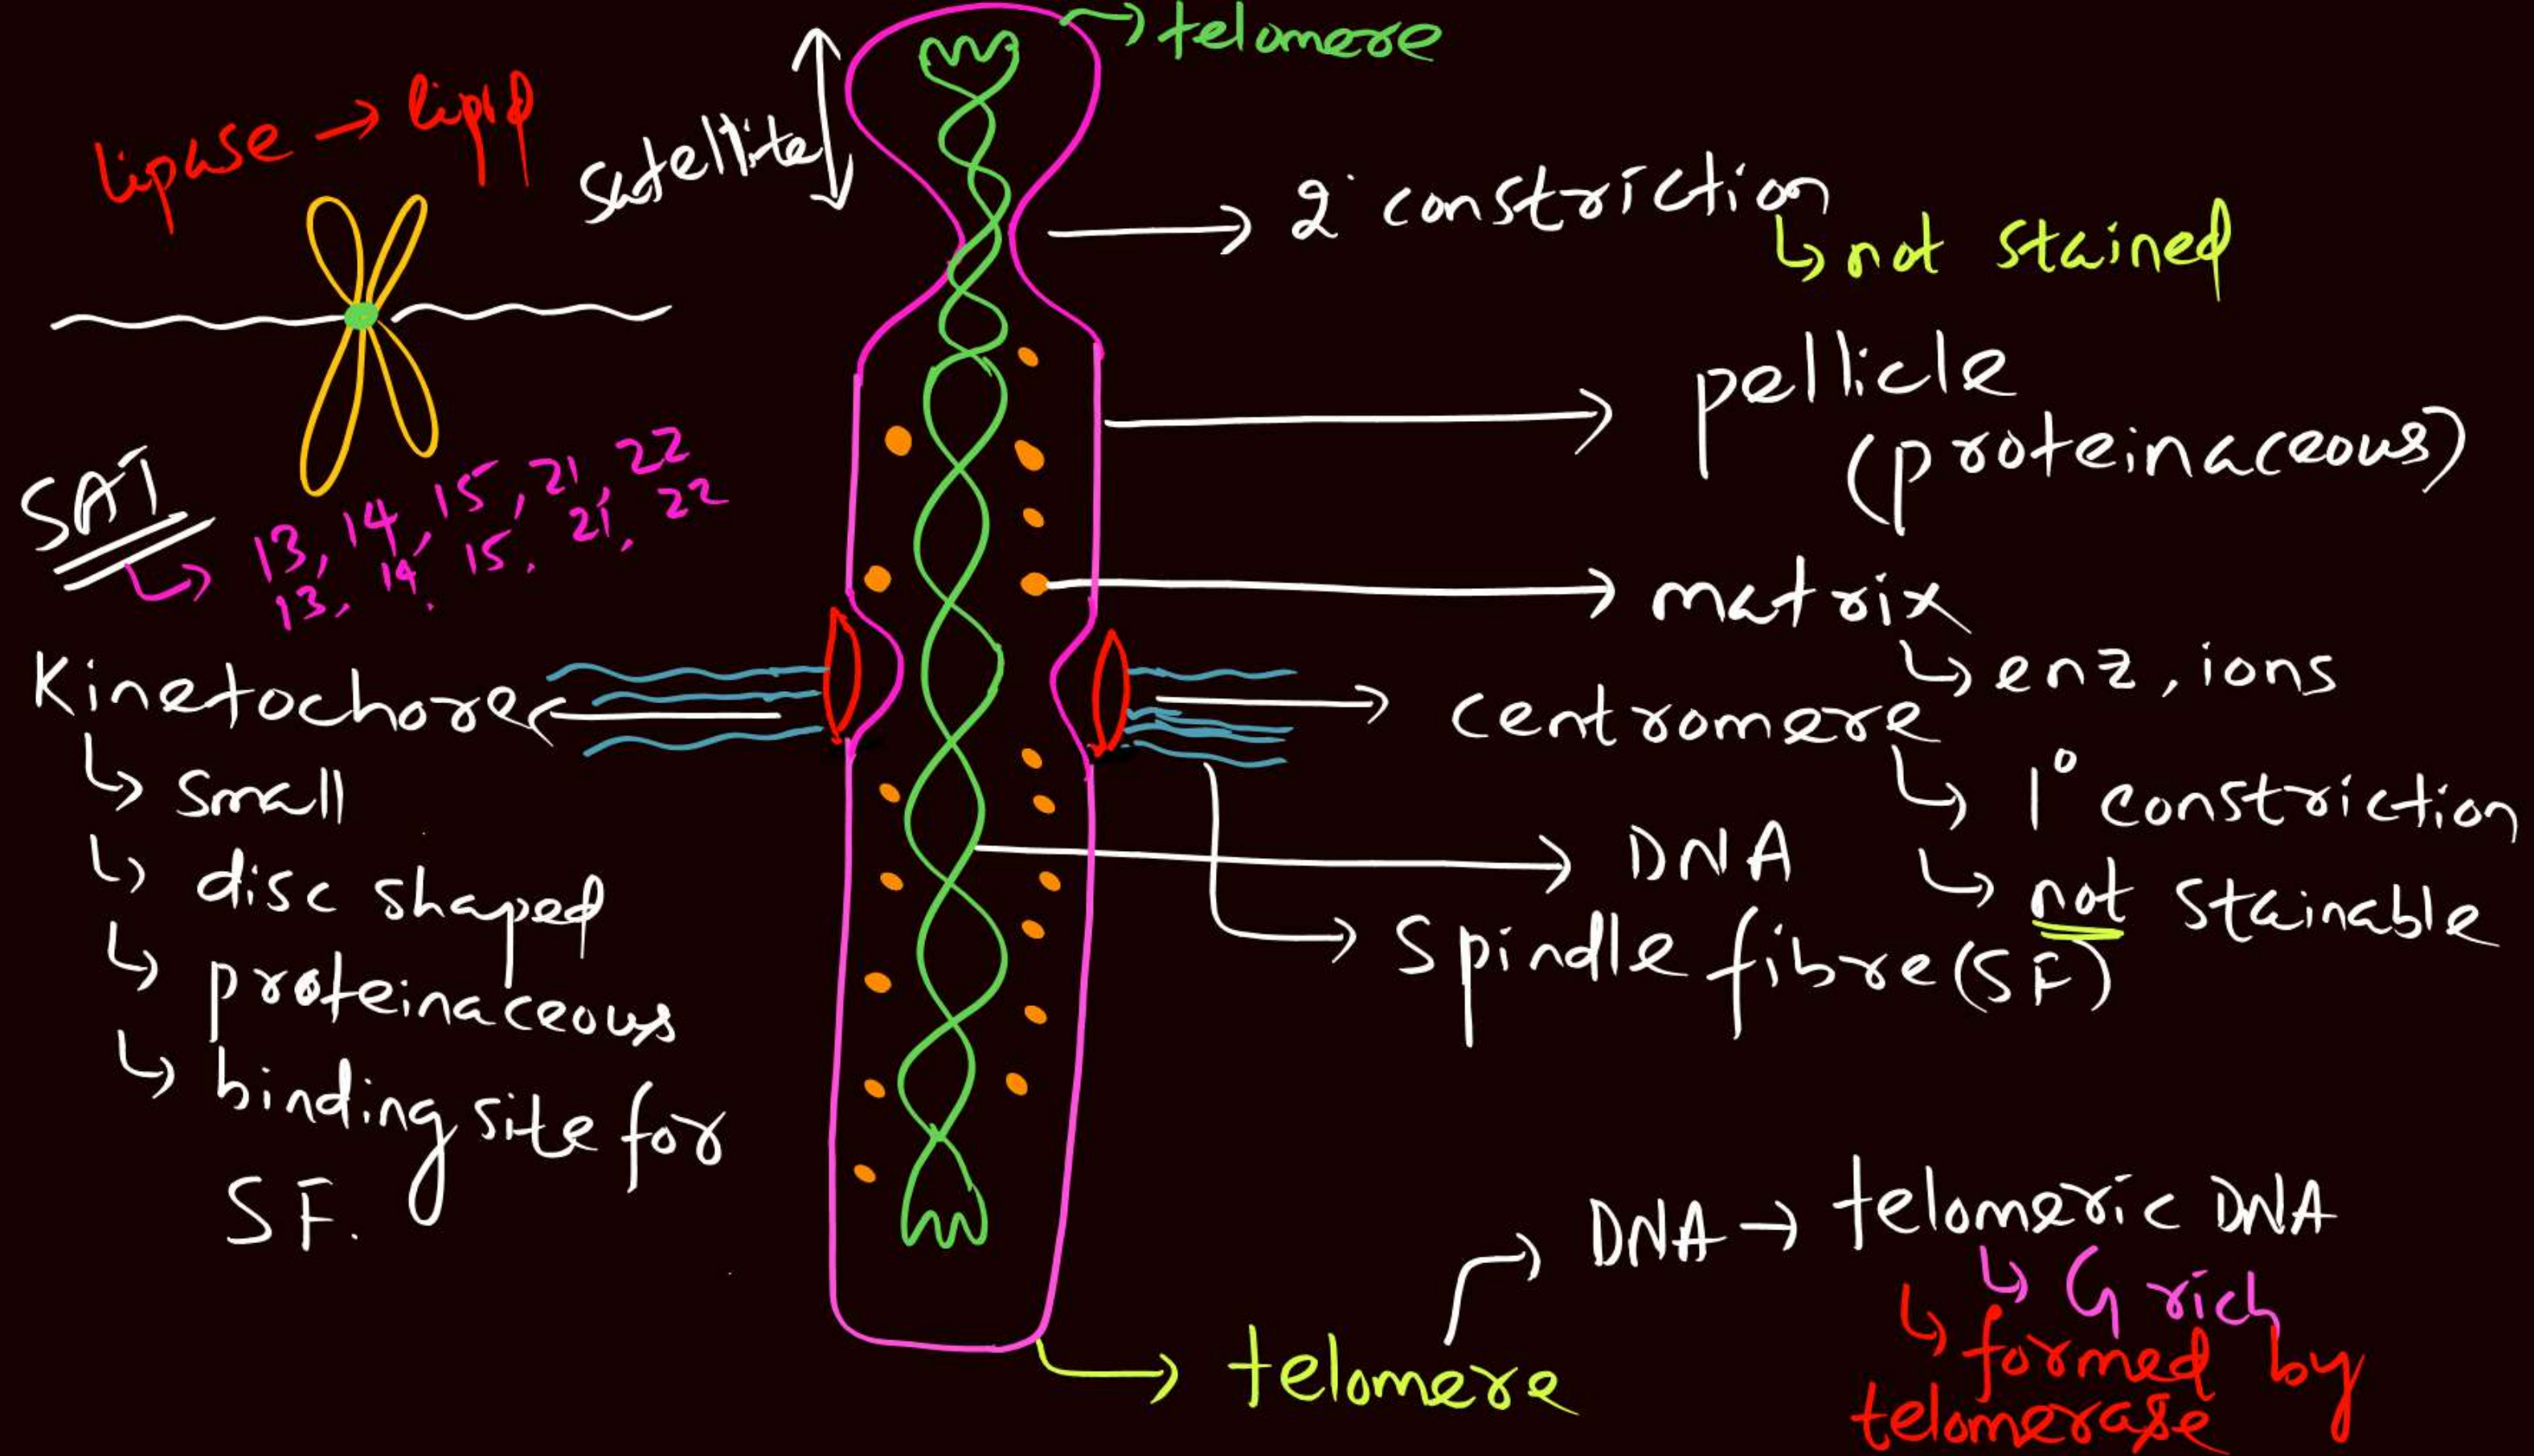 telomere
lipase → lipid
satellite
2° constriction
↳ not stained
pellicle
(proteinaceous)
SAT
↳ 13, 14, 15, 21, 22
13, 14, 15, 21, 22
matrix
↳ enz, ions
Kinetochore
↳ small
↳ disc shaped
↳ proteinaceous
↳ binding site for
SF.
centromere
↳ 1° constriction
↳ not stainable
DNA
Spindle fibre (SF)
DNA → telomeric DNA
↳ G rich
↳ formed by
telomerase
telomere